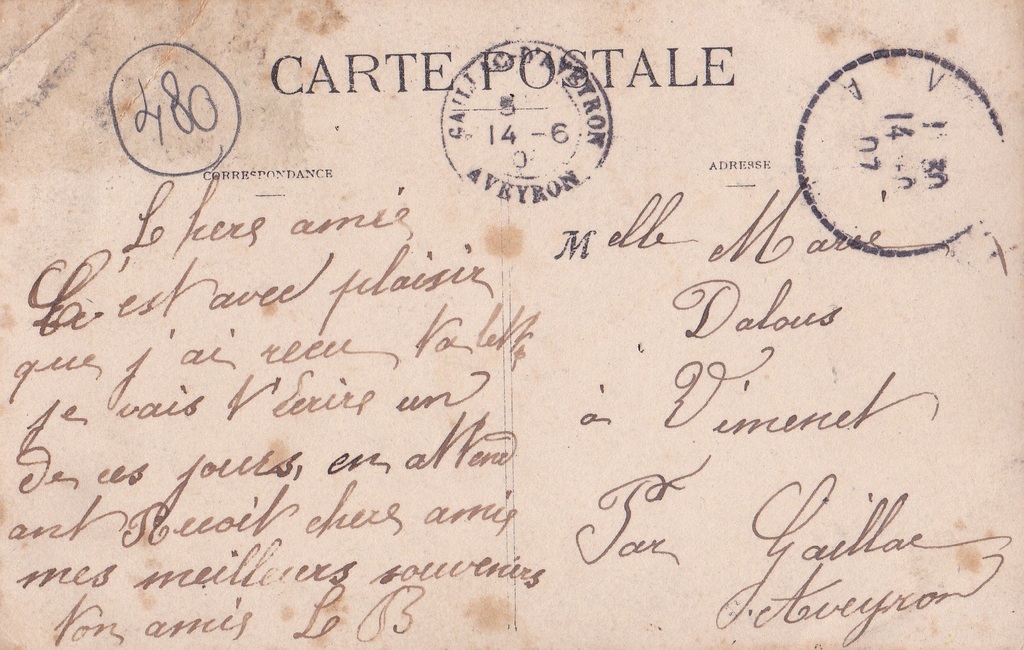 CARTE POSTALE
480
GAILLAC-D'AVEYRON
5
14 - 6
0
AVEYRON
14
07
CORRESPONDANCE
ADRESSE
chere amie
C'est avec plaisir
que j'ai recu ta lettre
je vais t'Ecrire un
de ces jours, en attend
ant Recoit chere amie
mes meilleurs souvenirs
ton amie B
Melle Marie
Dalous
à Vimenet
Par Gaillac
Aveyron